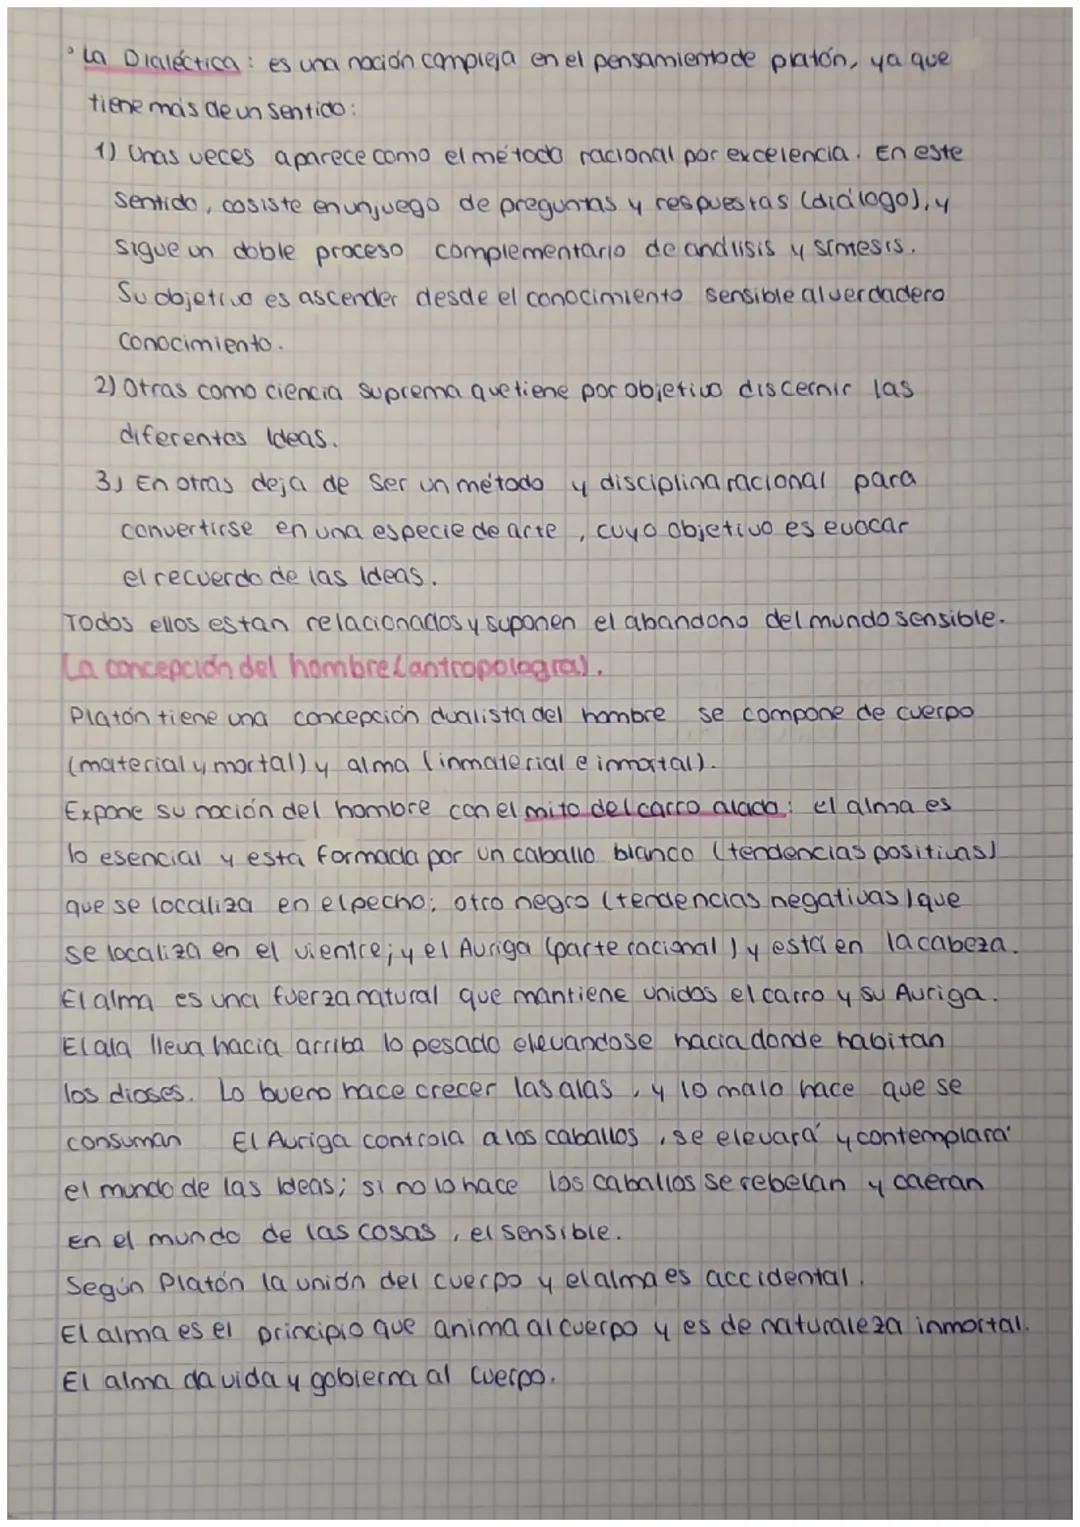 ° La Dialéctica: es una noción compleja en el pensamiento de platón, ya que
tiene más de un sentido:
1) Unas veces aparece como el método racional por excelencia. En este
sentido, cosiste en un juego de preguntas y respuestas (diálogo), y
sigue un doble proceso complementario de análisis y síntesis.
Su objetivo es ascender desde el conocimiento sensible al verdadero
conocimiento.
2) Otras como ciencia suprema que tiene por objetivo discernir las
diferentes Ideas.
3) En otras deja de ser un método y disciplina racional para
convertirse en una especie de arte, cuyo objetivo es evocar
el recuerdo de las Ideas.
Todos ellos estan relacionados y suponen el abandono del mundo sensible.
La concepción del hombre (antropología).
Platón tiene una concepción dualista del hombre se compone de cuerpo
(material y mortal) y alma (inmaterial e inmortal).
Expone su noción del hombre con el mito del carro alado: el alma es
lo esencial y esta formada por un caballo blanco (tendencias positivas)
que se localiza en el pecho; otro negro (tendencias negativas) que
se localiza en el vientre; y el Auriga (parte racional) y está en la cabeza.
El alma es una fuerza natural que mantiene unidos el carro y su Auriga.
El ala lleva hacia arriba lo pesado elevandose hacia donde habitan
los dioses. Lo bueno hace crecer las alas, y lo malo hace que se
consuman El Auriga controla a los caballos, se elevará y contemplará
el mundo de las Ideas; si no lo hace los caballos se rebelan y caeran
en el mundo de las cosas, el sensible.
Según Platón la unión del cuerpo y el alma es accidental.
El alma es el principio que anima al cuerpo y es de naturaleza inmortal.
El alma da vida y gobierna al cuerpo.